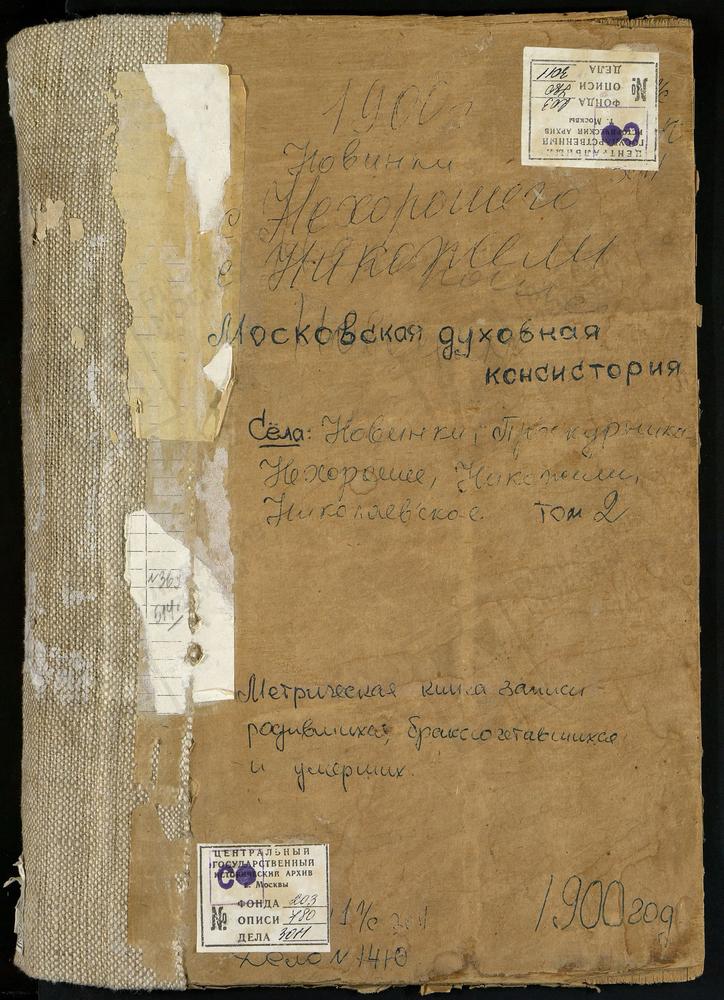 1900 г
Новинки
с Нехорошего
с Никожели
Московская духовная
консистория
Сёла: Новинки, Прокудника
Нехорошее, Никожели,
Николаевское том 2
№ 363
Метрическая книга записи
родившихся, браксочетавшихся
и умерших.
1900 год
ЦЕНТРАЛЬНЫЙ
ГОСУДАРСТВЕННЫЙ
ИСТОРИЧЕСКИЙ АРХИВ
г. Москвы
ФОНДА 203
№ ОПИСИ 780
ДЕЛА 3011
ЦЕНТРАЛЬНЫЙ
ГОСУДАРСТВЕННЫЙ
ИСТОРИЧЕСКИЙ АРХИВ
г. Москвы
ФОНДА 203
№ ОПИСИ 780
ДЕЛА 3011